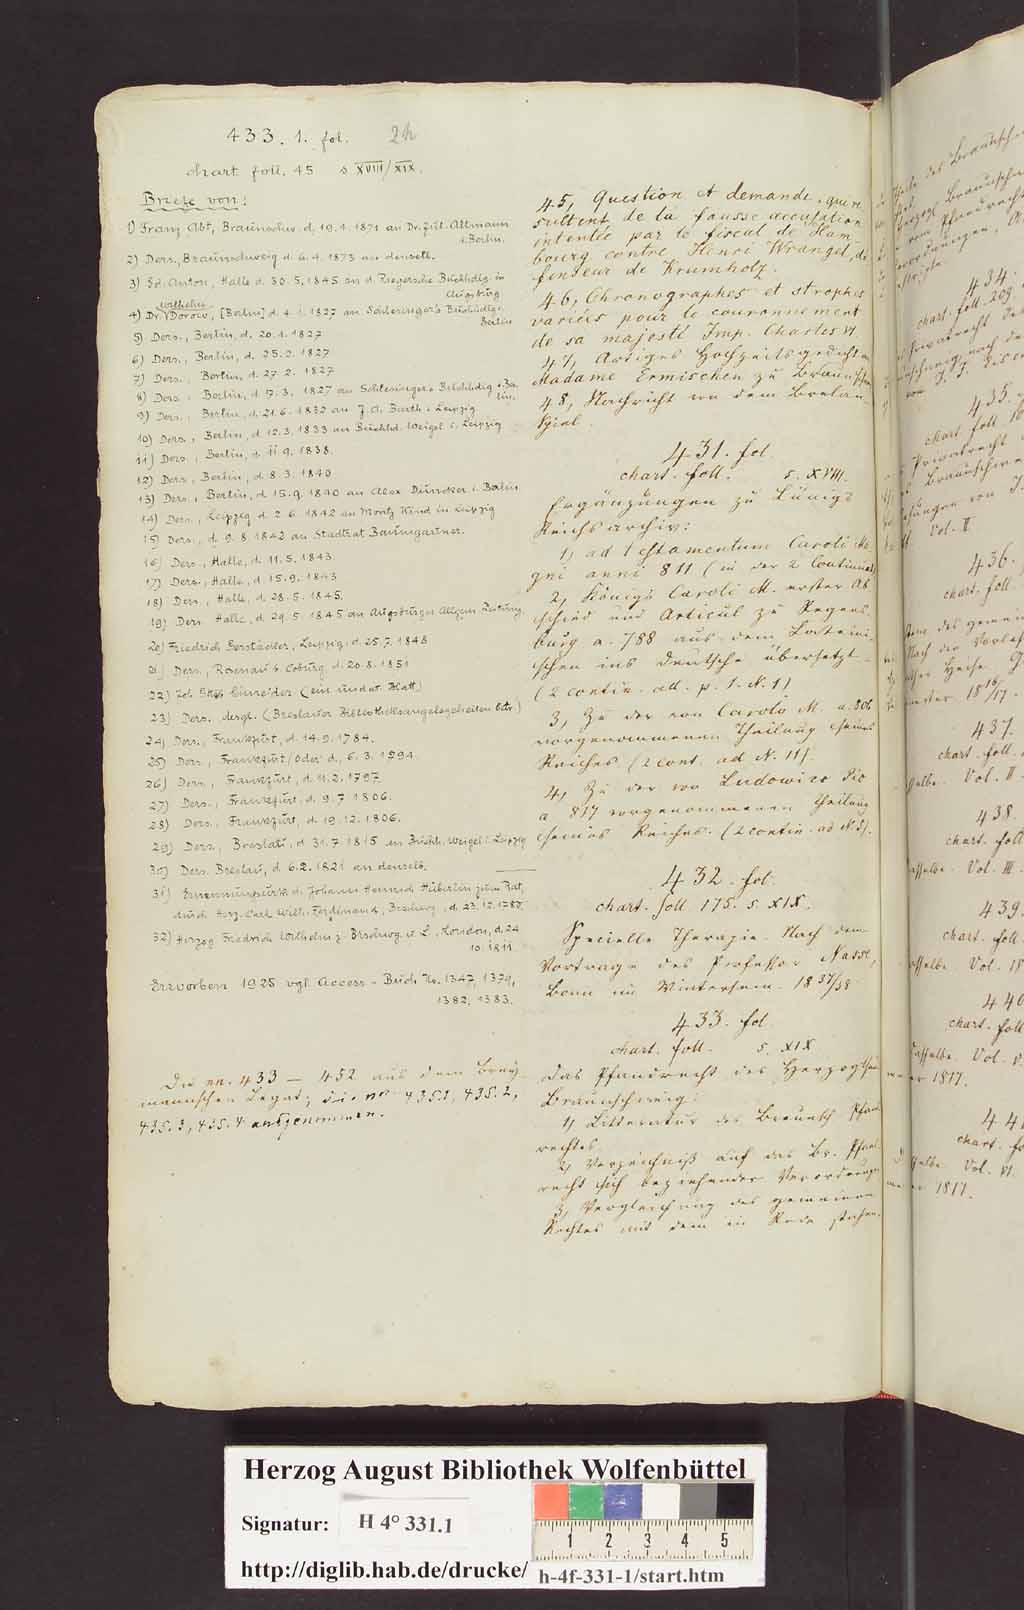 433.1. fol. 2h
chart foll. 45 s XVIII/XIX.
Briefe von:
1) Franz Abt, Braunschw. d. 19.4.1871 an Dr. Jul. Altmann
i. Berlin.
2) Ders., Braunschweig d. 6.4.1873 an denselb.
3) Ed. Anton, Halle d. 30.5.1845 an d. Riegersche Buchhdlg. in
Augsburg
4) Dr. Wilhelm Dorow, [Berlin] d. 4.1.1827 an Schlesinger's Buchhdlg.
Berlin
5) Ders., Berlin, d. 20.1.1827
6) Ders., Berlin, d. 25.2.1827
7) Ders., Berlin, d. 27.2.1827
8) Ders., Berlin, d. 17.3.1827 an Schlesinger's Buchhdlg i. Ber
lin.
9) Ders., Berlin, d. 21.6.1832 an J. A. Barth i. Leipzig
10) Ders., Berlin, d. 12.3.1833 an Buchhd. Weigel i. Leipzig
11) Ders., Berlin, d. 11.9.1838.
12) Ders., Berlin, d. 8.3.1840
13) Ders., Berlin, d. 15.9.1840 an Alex Duncker i. Berlin
14) Ders., Leipzig d. 2.6.1842 an Moritz Kind in Leipzig
15) Ders., d. 9.8.1842 an Stadtrat Baumgärtner.
16) Ders., Halle, d. 11.5.1843.
17) Ders., Halle, d. 15.9.1843
18) Ders., Halle, d. 28.5.1845.
19) Ders. Halle, d. 29.5.1845 an Augsburger Allgem. Zeitung.
20) Friedrich Gerstäcker, Leipzig, d. 25.7.1848
21) Ders., Rosenau b. Coburg, d. 20.8.1851
22) Joh. Gttlo. Schneider (ein undat. Blatt)
23) Ders. desgl. (Breslauer Bibliotheksangelegenheiten betr.)
24) Ders., Frankfurt, d. 14.9.1784.
25) Ders., Frankfurt/Oder d. 6.3.1794.
26) Ders., Frankfurt, d. 11.2.1797
27) Ders., Frankfurt, d. 9.7.1806.
28) Ders., Frankfurt, d. 19.12.1806.
29) Ders., Breslau, d. 31.7.1815 an Buchh. Weigel i. Leipzig
30) Ders. Breslau, d. 6.2.1821 an denselb.
31) Ernennungsurk. d. Johann Heinrich Häberlin zum Rat,
durch Herz. Carl Wilh. Ferdinand, Brschwg., d. 23.12.1787
32) Herzog Friedrich Wilhelm z. Brschwg. u. L., London, d. 24.
10. 1811.
Erworben 1925 vgl. Access-Buch No. 1347, 1379,
1382, 1383.
Die nn. 433 – 452 aus dem Brey-
mannschen Legat; die nn 435.1, 435.2,
435.3, 435.4 ausgenommen.
45, Question et demande, qui re-
sultent de la fausse accusation
intentée par le fiscal de Ham-
bourg contre Henri Wrangel, de-
fenseur de Krumholz.
46, Chronographes et strophes
variées pour le couronnement
de sa majesté Imp. Charles VI.
47, Artiges Hochzeitsgedicht an
Madame Ermischen zu Braunschw
48, Nachricht von dem Bretan
Spiel.
431. fol.
chart. foll. s. XVIII.
Ergänzungen zu Lünigs
Reichsarchiv:
1, ad Testamentum Caroli Ma-
gni anni 811 (in der 2 Continuat
2, Königs Caroli M. erster Ab-
schied und Articul zu Regens-
burg a. 788 aus dem Lateini-
schen ins Deutsche übersetzt
(2 contin. ad. p. 1. N. 1)
3, Zu der von Carolo M. a. 806
vorgenommenen Theilung seines
Reiches (2 cont. ad N. 11).
4, Zu der von Ludovico Pio
a 817 vorgenommenen Theilung
seines Reiches. (2 contin. ad N. 3).
432. fol.
chart. foll. 175. s. XIX.
Specielle Therapie. Nach dem
Vortrage des Professor Nasse,
Bonn im Wintersem. 1837/38
433. fol.
chart. foll. s. XIX
Das Pfandrecht des Herzogthum
Braunschweig:
1, Litteratur des Braunsch. Pfand
rechtes
2, Verzeichniß auf das Br. Pfand
recht sich beziehender Verordnungen
3, Vergleichung des gemeinen
Rechtes mit dem in Rede stehen
434.
chart. foll. 209
435.
chart. foll
Vol. II
436.
chart. foll.
1816/17.
437.
chart. foll.
Vol. II
438.
chart. foll
Vol. III
439.
chart. foll
Vol. IV
440
chart. foll
Vol. V
1817.
441
chart. fo
Vol. VI
1817.
Herzog August Bibliothek Wolfenbüttel
Signatur: H 4° 331.1
1 2 3 4 5
http://diglib.hab.de/drucke/ h-4f-331-1/start.htm